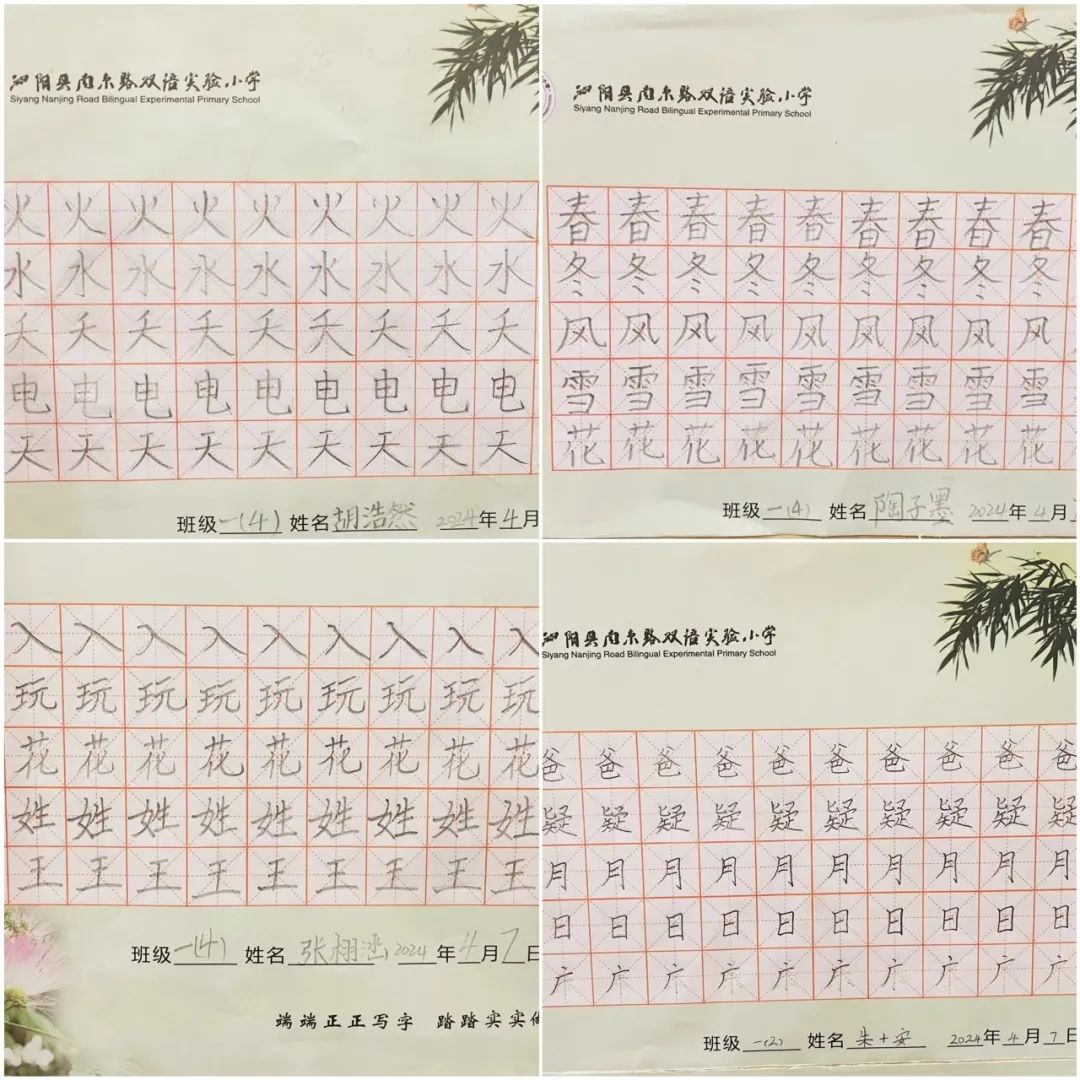 泗阳县南京路双语实验小学
Siyang Nanjing Road Bilingual Experimental Primary School
火火火火火火火火火
水水水水水水水水水
夭夭夭夭夭夭夭夭夭
电电电电电电电电电
天天天天天天天天天
班级 一(4) 姓名 胡浩然 2024年4月
泗阳县南京路双语实验小学
Siyang Nanjing Road Bilingual Experimental Primary School
春春春春春春春春春
冬冬冬冬冬冬冬冬冬
风风风风风风风风风
雪雪雪雪雪雪雪雪雪
花花花花花花花花花
班级 一(4) 姓名 陶子墨 2024年4月
入入入入入入入入入
玩玩玩玩玩玩玩玩玩
花花花花花花花花花
姓姓姓姓姓姓姓姓姓
王王王王王王王王王
班级 一(4) 姓名 张栩涵 2024年4月7日
端端正正写字 踏踏实实做
泗阳县南京路双语实验小学
Siyang Nanjing Road Bilingual Experimental Primary School
爸爸爸爸爸爸爸爸爸爸
疑疑疑疑疑疑疑疑疑疑
月月月月月月月月月月
日日日日日日日日日日
班级 一(2) 姓名 朱十安 2024年4月7日